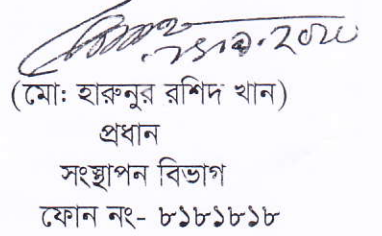 (মো: হারুনুর রশিদ খান)
প্রধান
সংস্থাপন বিভাগ
ফোন নং- ৮১৮১৮১৮